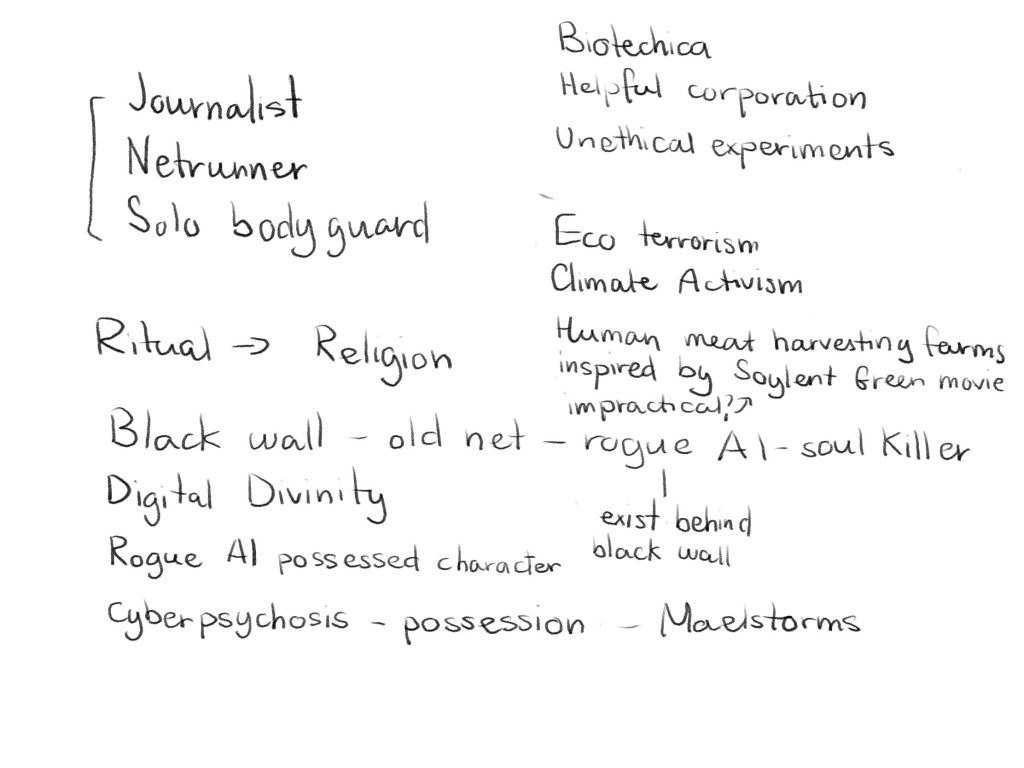 Journalist
Netrunner
Solo bodyguard
Biotechica
Helpful corporation
Unethical experiments
Eco terrorism
Climate Activism
Human meat harvesting farms
inspired by Soylent Green movie
impractical?↗
Ritual → Religion
Black wall - old net - rogue AI - soul killer
exist behind
black wall
Digital Divinity
Rogue AI possessed character
Cyberpsychosis - possession - Maelstorms